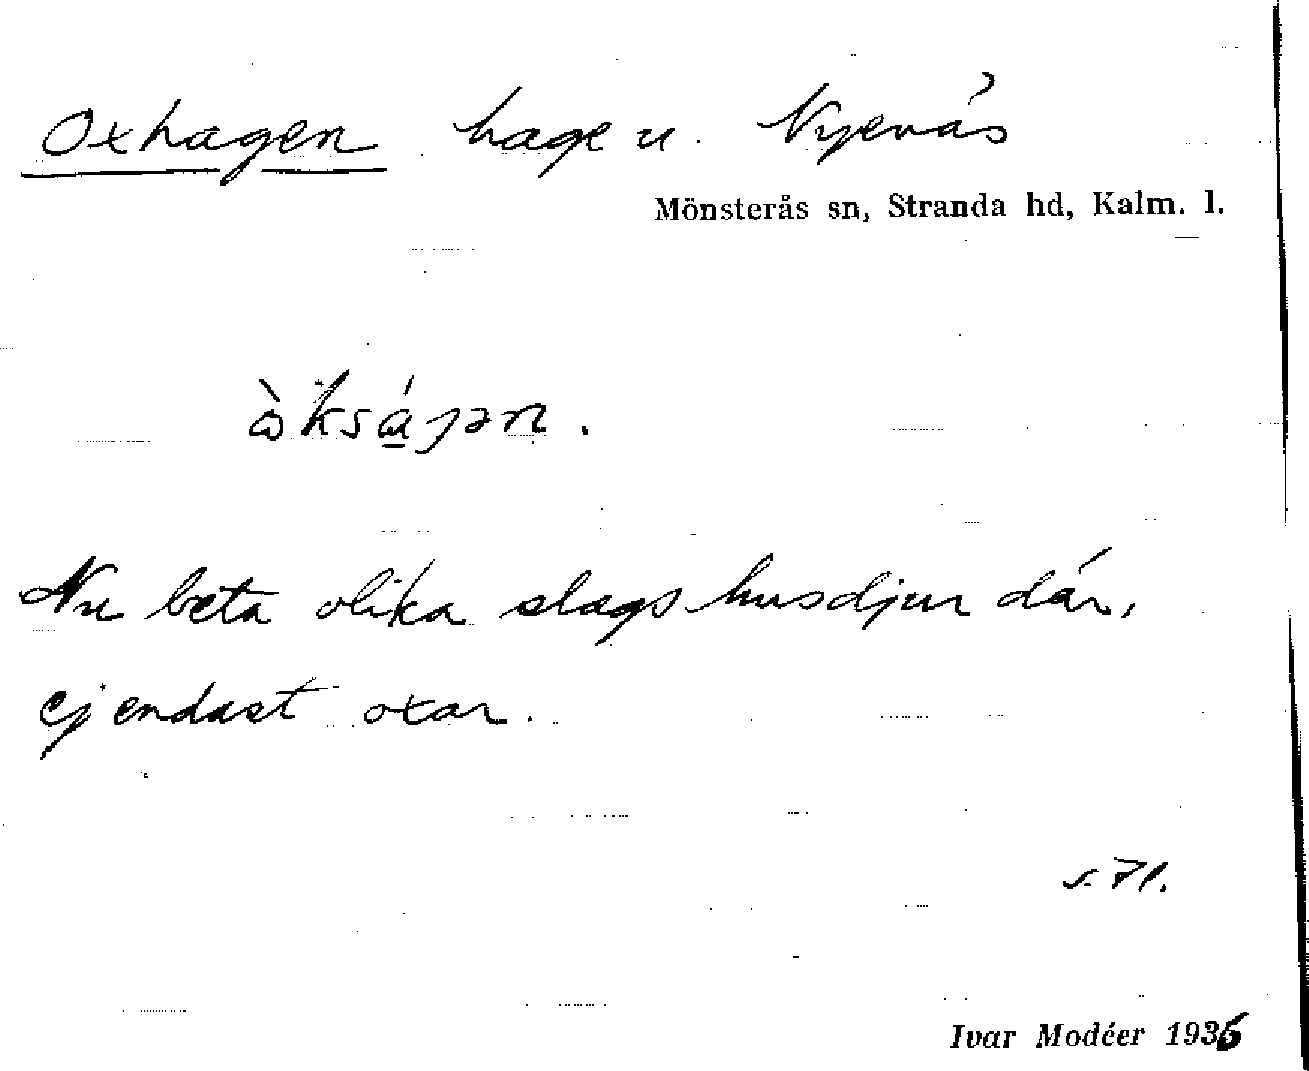 Oxhagen hage u. Nyevås
Mönsterås sn, Stranda hd, Kalm. l.
ɷ̀ksá̱ȷən.
Nu beta olika slags husdjur där,
ej endast oxar.
s. 71.
Ivar Modéer 1936